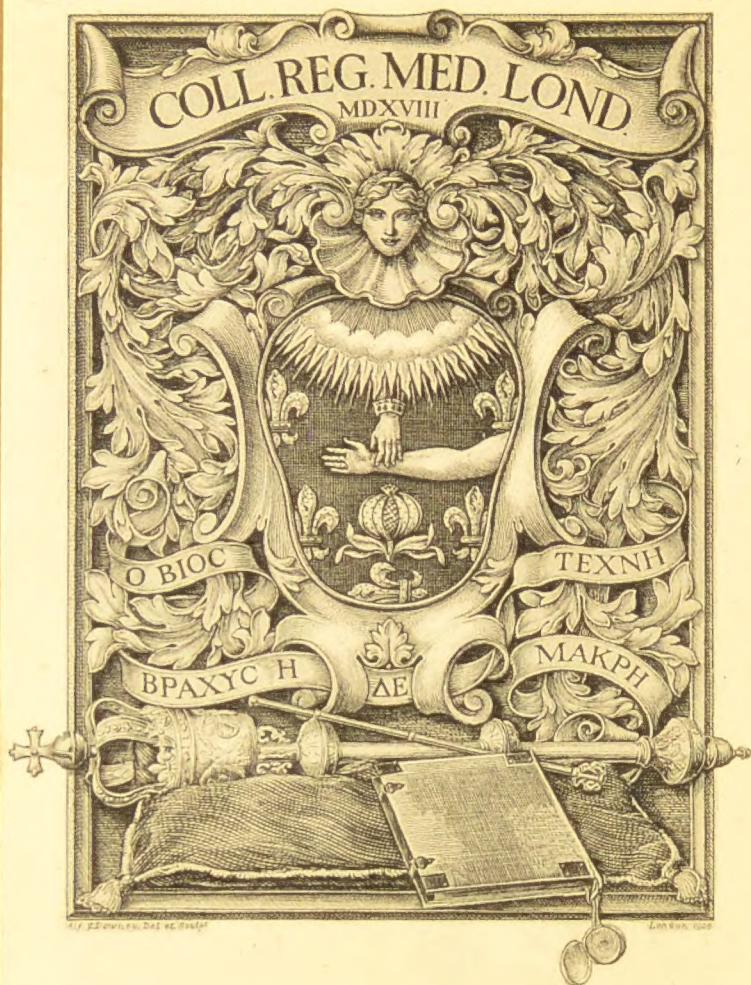 COLL. REG. MED. LOND.
MDXVIII
Ο ΒΙΟC
ΤΕΧΝΗ
ΒΡΑΧΥC Η
ΔΕ
ΜΑΚΡΗ
Del et Sculpt
London